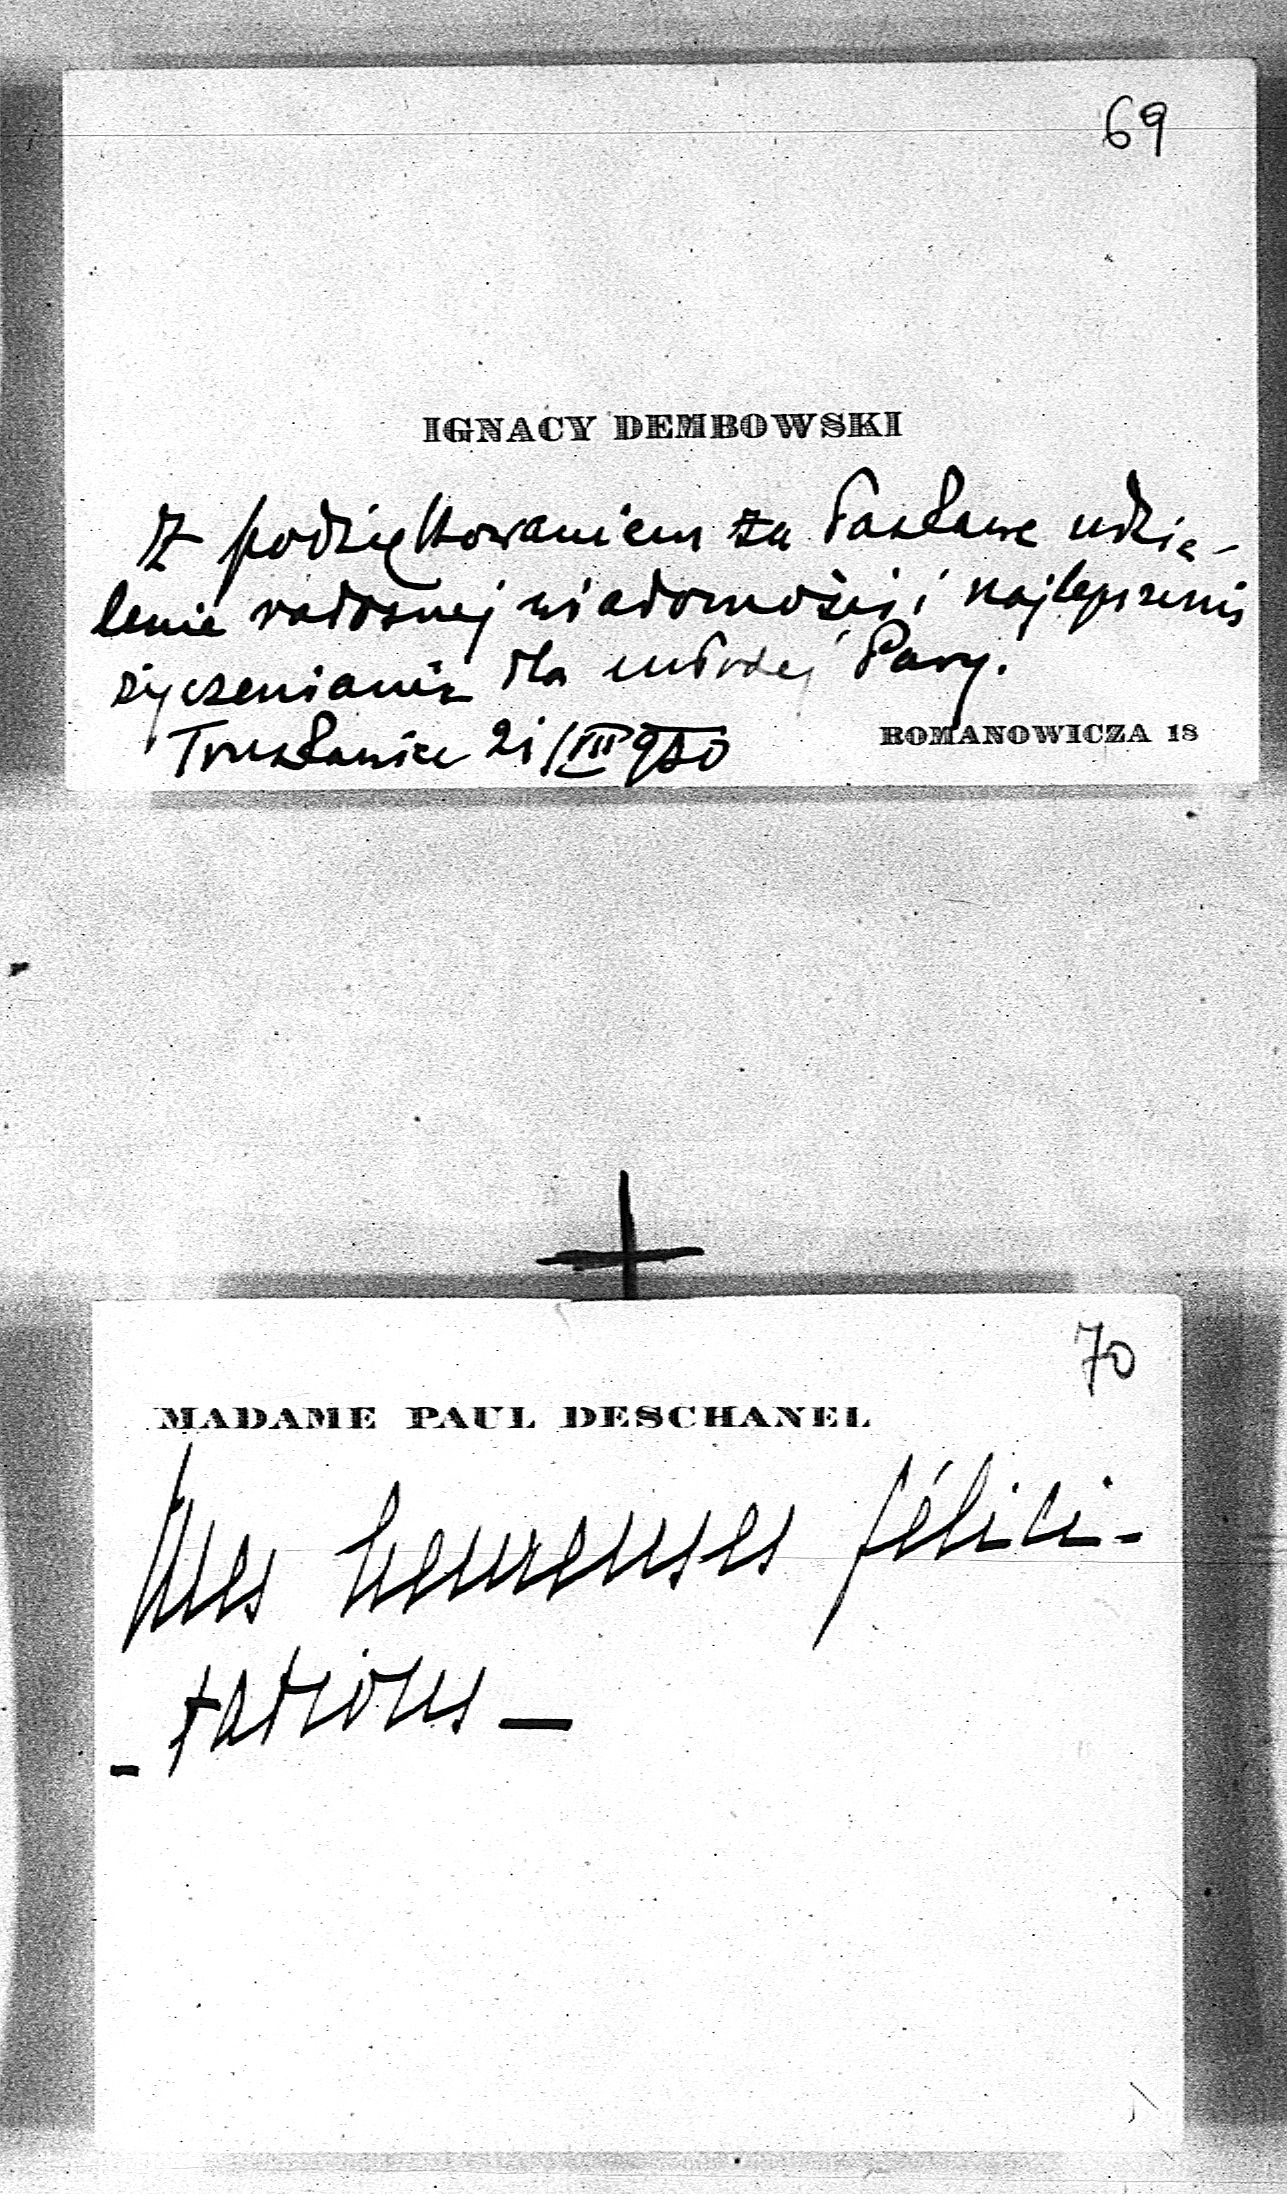 69
IGNACY DEMBOWSKI
Z podziękowaniem za łaskawe udzie-
lenie radosnej wiadomości i najlepszemi
życzeniami dla młodej Pary.
Truskawiec 21/VII 930
ROMANOWICZA 18
70
MADAME PAUL DESCHANEL
Mes heureuses félici-
- tations -